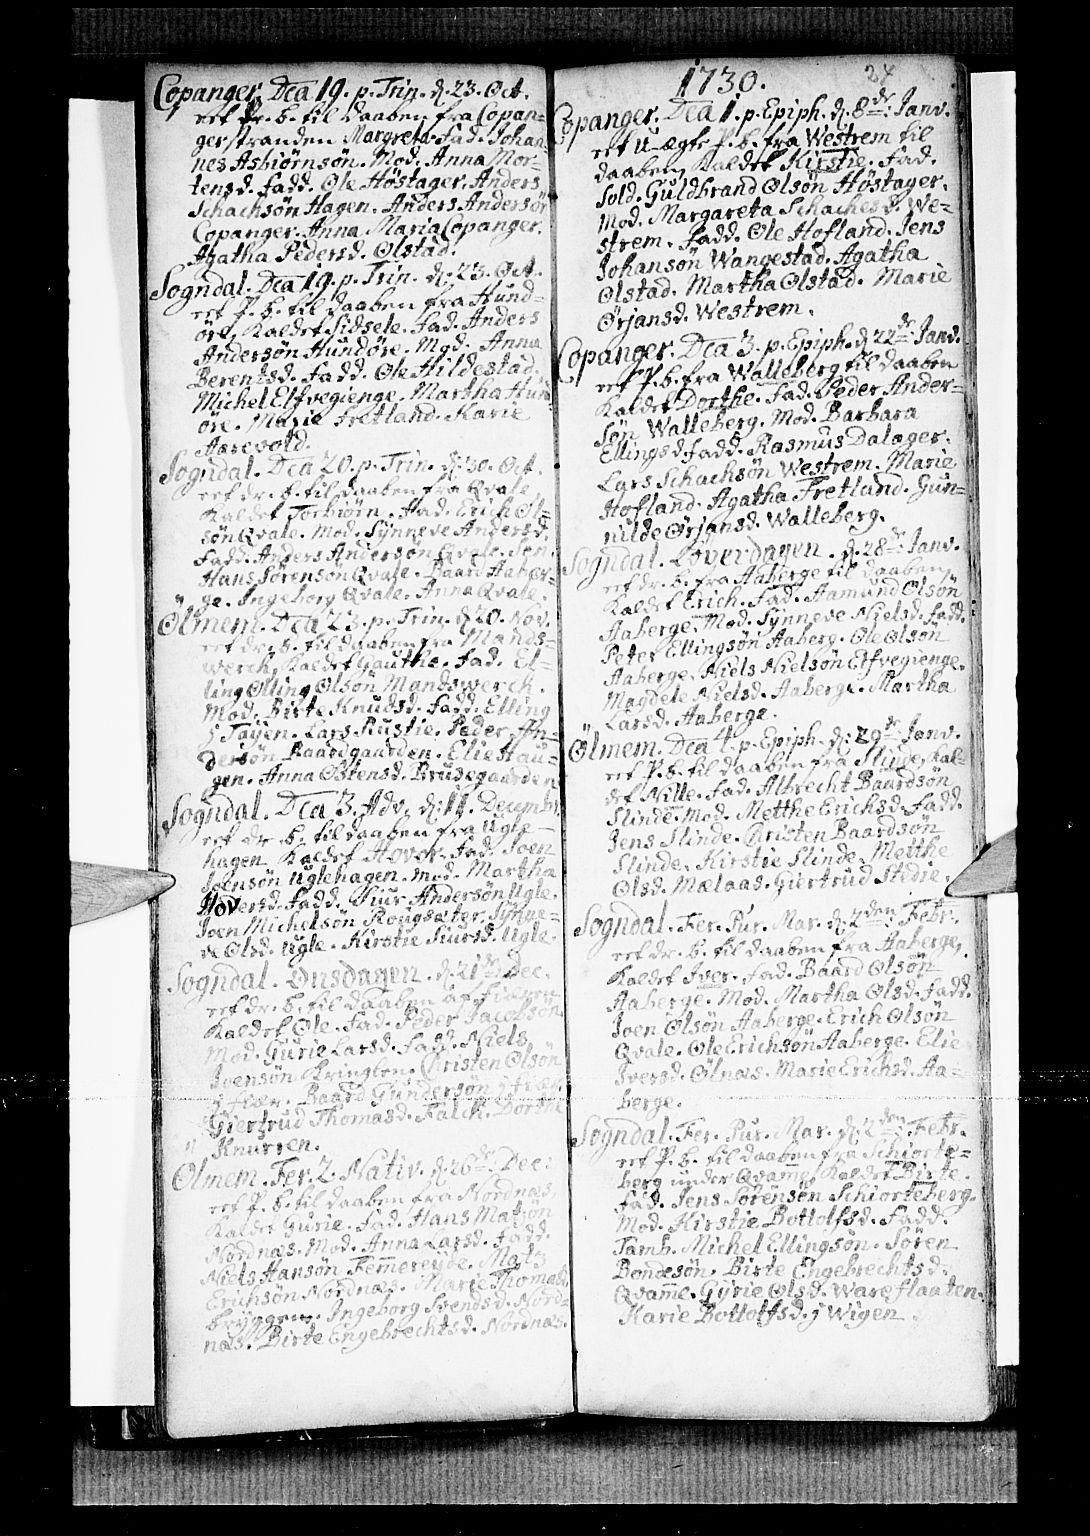 Copanger. Dca 19. p. Trin. d. 23. Oct.
eet dr. b. til daaben fra Copan=
gerstranden Margreta. Fad. Johan
nes Asbiörnsön. Mod. Anna Mor=
tensd. Fadd. Ole Höstager. Anders
Schachsön Hagen. Anders Andersön
Copanger. Anna Maria Copanger.
Agatha Pedersd. Olstad.
Sogndal. Dca 19. p. Trin. d. 23. Oct.
eet P. b. til daaben fra Hund=
öre, Kaldet Sidsele. Fad. Anders
Andersön Hundöre. Mod. Anna
Berentsd. Fadd. Ole Hildestad.
Michel Elfvegienge. Martha Hun
öre. Marie Fretland. Karie
Aarevold.
Sogndal. Dca 20. p. Trin. d. 30. Oct.
eet dr. b. til daaben fra Qvale
Kaldet Torbiörn. Fad. Erich Ol=
sön Qvale. Mod. Synneve Andersd.
Fadd. Anders Andersön Qvale. Jen.
Hans Sörensön Qvale. Baard Aaber=
ge. Ingeborg Qvale. Anna Qvale.
Ölmem. Dca 23. p. Trin. d. 20. Nov.
eet dr. b. til daaben fra Mands=
werch, Kaldet Gauthe. Fad. El=
ling Olling Olsön Mandswerch.
Mod. Birte Knudsd. Fadd. Elling
j Tøyen. Lars Rustie. Peder An=
dersön Baardgaarden. Elie Hau=
gen. Anna Östensd. Brusegaarden
Sogndal. Dca 3. Adv. d. 11. Decembr.
eet dr. b. til daaben fra Ugle=
hagen Kaldet Hover. Fad. Joen
Joensön Uglehagen. Mod. Martha
Hoversd. Fadd. Siur Andersön Ugle.
Joen Michelsön Rougsæter. Synne=
ve Olsd. Ugle. Kirstie Siursd. Ugle.
Sogndal. Onsdagen. d. 21de Dec.
eet dr. b. til daaben af Fiæren
Kaldet Ole. Fad. Peder Jacobsön
Mod. Gurie Larsd. Fadd. Niels
Joensön Kringlen. Christen Olsön
j Fiær. Baard Gundersön j Fiær.
Giertrud Thomasd. Falch. Dorthe
Knurren.
Ölmem. Fer. 2. Nativ. d. 26de Dec:
eet P. b. til daaben fra Nordnæs,
Kaldet Gurie. Fad. Hans Matsön
Nordnæs. Mod. Anna Larsd. Fadd.
Niels Hansön Femmereyde. Mats
Erichsön Nordnæs. Marie Thomasd.
Bryggen. Ingeborg Svendsd. Nord=
næs. Birte Engebrechtsd. Nordnæs.
24
1730.
Copanger. Dca 1. p. Epiph. d. 8de Janv.
eet U-ægte P. b. fra Westrem til
daaben Kaldet Kirstie. Fad.
Sold. Guldbrand Olsøn Höstager.
Mod. Margareta Schachesd. We=
strem. Fadd. Ole Hofland. Jens
Johansön Wangestad. Agatha
Olstad. Martha Olstad. Marie
Ørjansd. Westrem.
Copanger. Dca 3. p. Epiph. d. 22de Janv.
eet P. b. fra Walleberg til daaben
Kaldet Dorthe. Fad. Peder Ander=
sön Walleberg. Mod. Barbara
Ellingsd. Fadd. Rasmus Dalager.
Lars Schachsön Westrem. Marie
Hofland. Agatha Fretland. Gun=
nilde Ørjansd. Walleberg.
Sogndal. Löverdagen. d. 28de Janv.
eet dr. b. fra Aaberge til daaben,
Kaldet Erich. Fad. Aamund Olsön
Aaberge. Mod. Synneve Nielsd. Fadd.
Peter Ellingsön Aaberg. Ole Olsön
Aaberge. Niels Nielsön Elfvegienge.
Magdele Nielsd. Aaberge. Martha
Larsd. Aaberge.
Ölmem. Dca 4. p. Epiph. d. 29de Janv.
eet P. b. til daaben fra Slinde, Kal=
det Nille. Fad. Albrecht Baardsön
Slinde. Mod. Metthe Erichsd. Fadd.
Jens Slinde. Christen Baardsön
Slinde. Kirstie Slinde. Metthe
Olsd. Mælaas. Giertrud Stedie.
Sogndal. Fer. Pur. Mar. d. 2den Febr.
eet dr. b. til daaben fra Aaberge,
Kaldet Iver. Fad. Baard Olsön
Aaberge. Mod. Martha Olsd. Fadd.
Joen Olsön Aaberge. Erich Olsön
Qvale. Ole Erichsön Aaberge. Elie
Iversd. Ølnæs. Marie Erichsd. Aa=
berge.
Sogndal. Fer. Pur. Mar. d. 2den Febr.
eet P. b. til daaben fra Schiorte=
berg under Qvame, Kaldet Birte.
Fad. Jens Sörensön Schiorteberg.
Mod. Kirstie Bottolfsd. Fadd.
Tamb. Michel Ellingsön. Sören
Bondesön. Birte Engebrechtsd.
Qvame. Gyrie Olsd. Wareflaaten.
Karie Bottolfsd. j Wigen